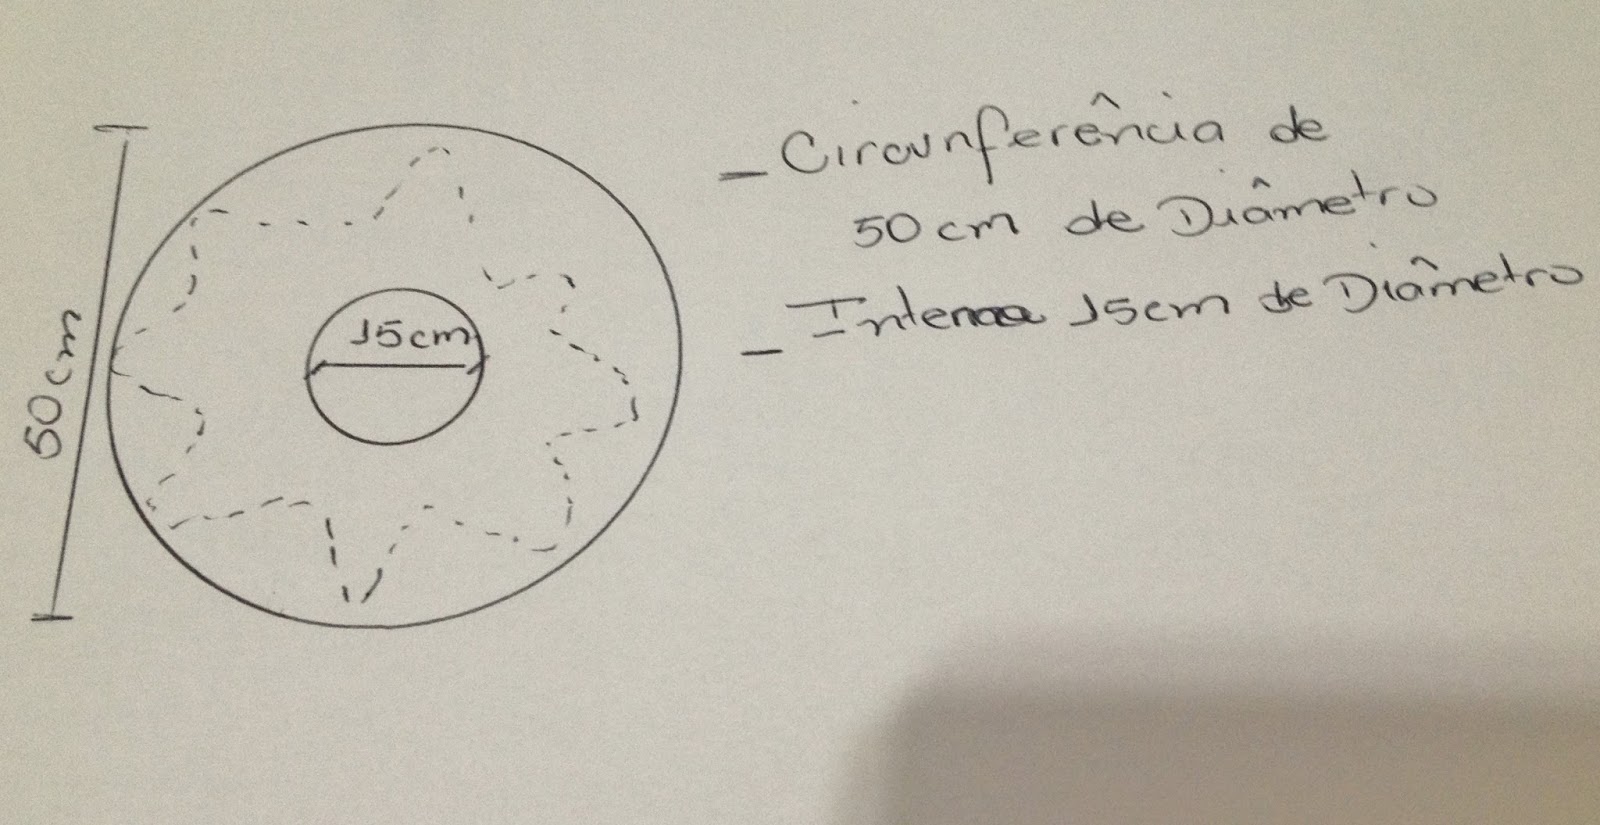 50cm
15cm
- Circunferência de
50cm de Diâmetro
- Interna 15cm de Diâmetro